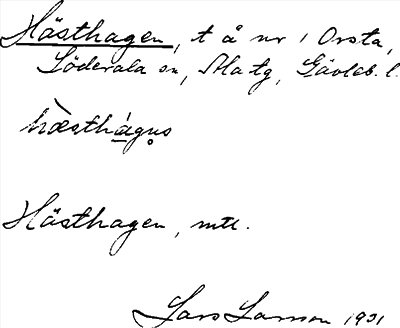 Hästhagen, t å nr 1 Orsta,
Söderala sn, Ala tg, Gävleb. l.
hæsthàgu̥s
Hästhagen, mtl.
Lars Larsson 1931